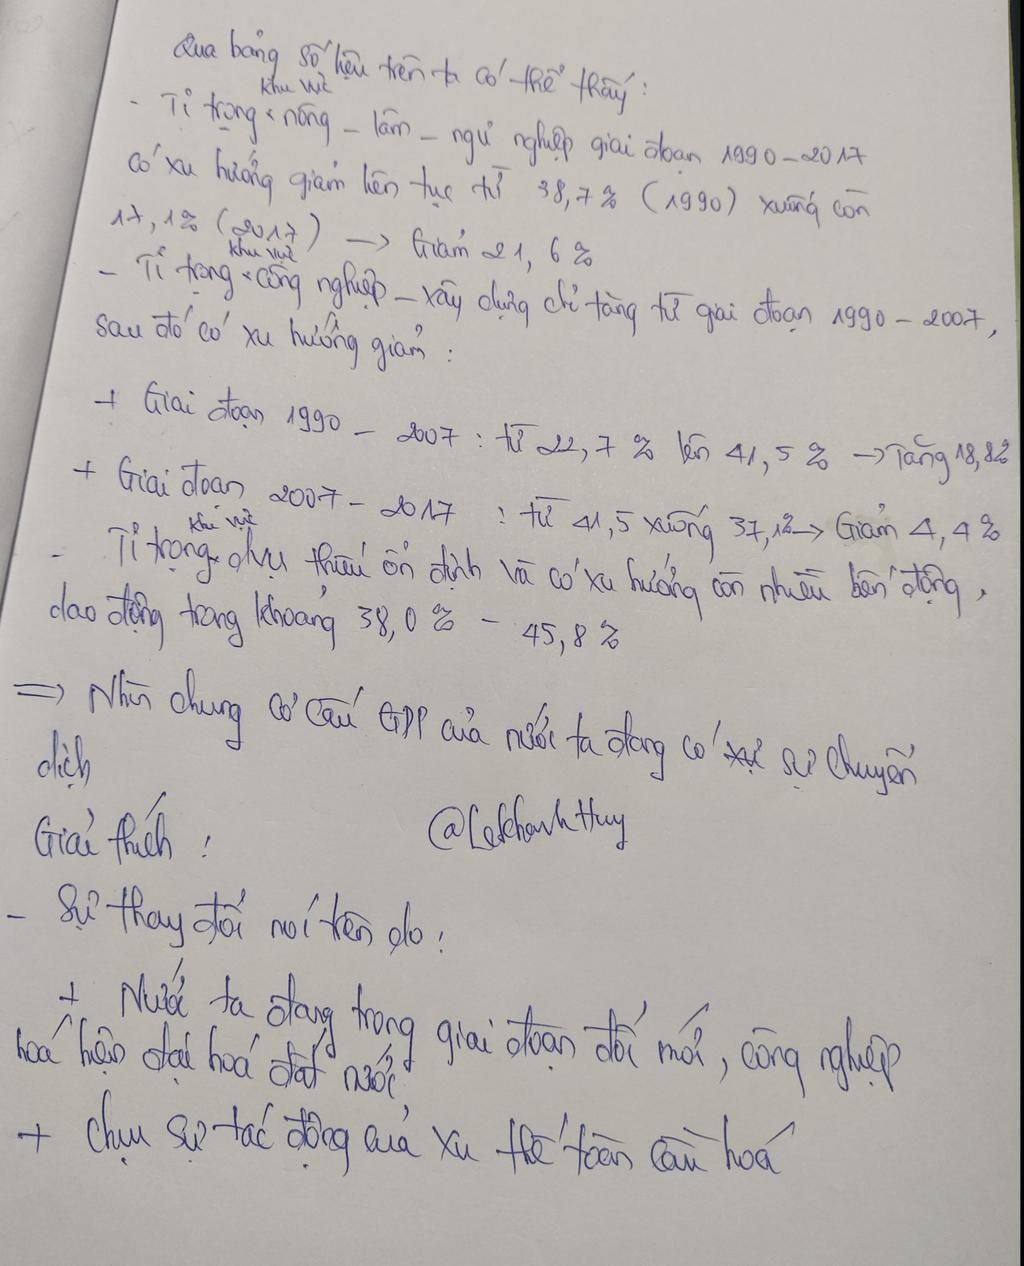 Qua bảng số liệu trên ta có thể thấy:
khu vực
- Tỉ trọng nông - lâm - ngư nghiệp giai đoạn 1990-2017
có xu hướng giảm liên tục từ 38,7% (1990) xuống còn
17,1% (2017) → Giảm 21,6%
khu vực
- Tỉ trọng công nghiệp - xây dựng chỉ tăng từ giai đoạn 1990-2007,
sau đó có xu hướng giảm:
+ Giai đoạn 1990 - 2007: từ 22,7% lên 41,5% → Tăng 18,8%
+ Giai đoạn 2007 - 2017: từ 41,5 xuống 37,1% → Giảm 4,4%
khu vực
- Tỉ trọng dịch vụ thiếu ổn định và có xu hướng còn nhiều biến động,
dao động trong khoảng 38,0% - 45,8%
=> Nhìn chung cơ cấu GDP của nước ta đang có sự chuyển
dịch
Giải thích:
@LekhanhHuy
- Sự thay đổi nói trên do:
+ Nước ta đang trong giai đoạn đổi mới, công nghiệp
hoá hiện đại hoá đất nước
+ Chịu sự tác động của xu thế toàn cầu hoá